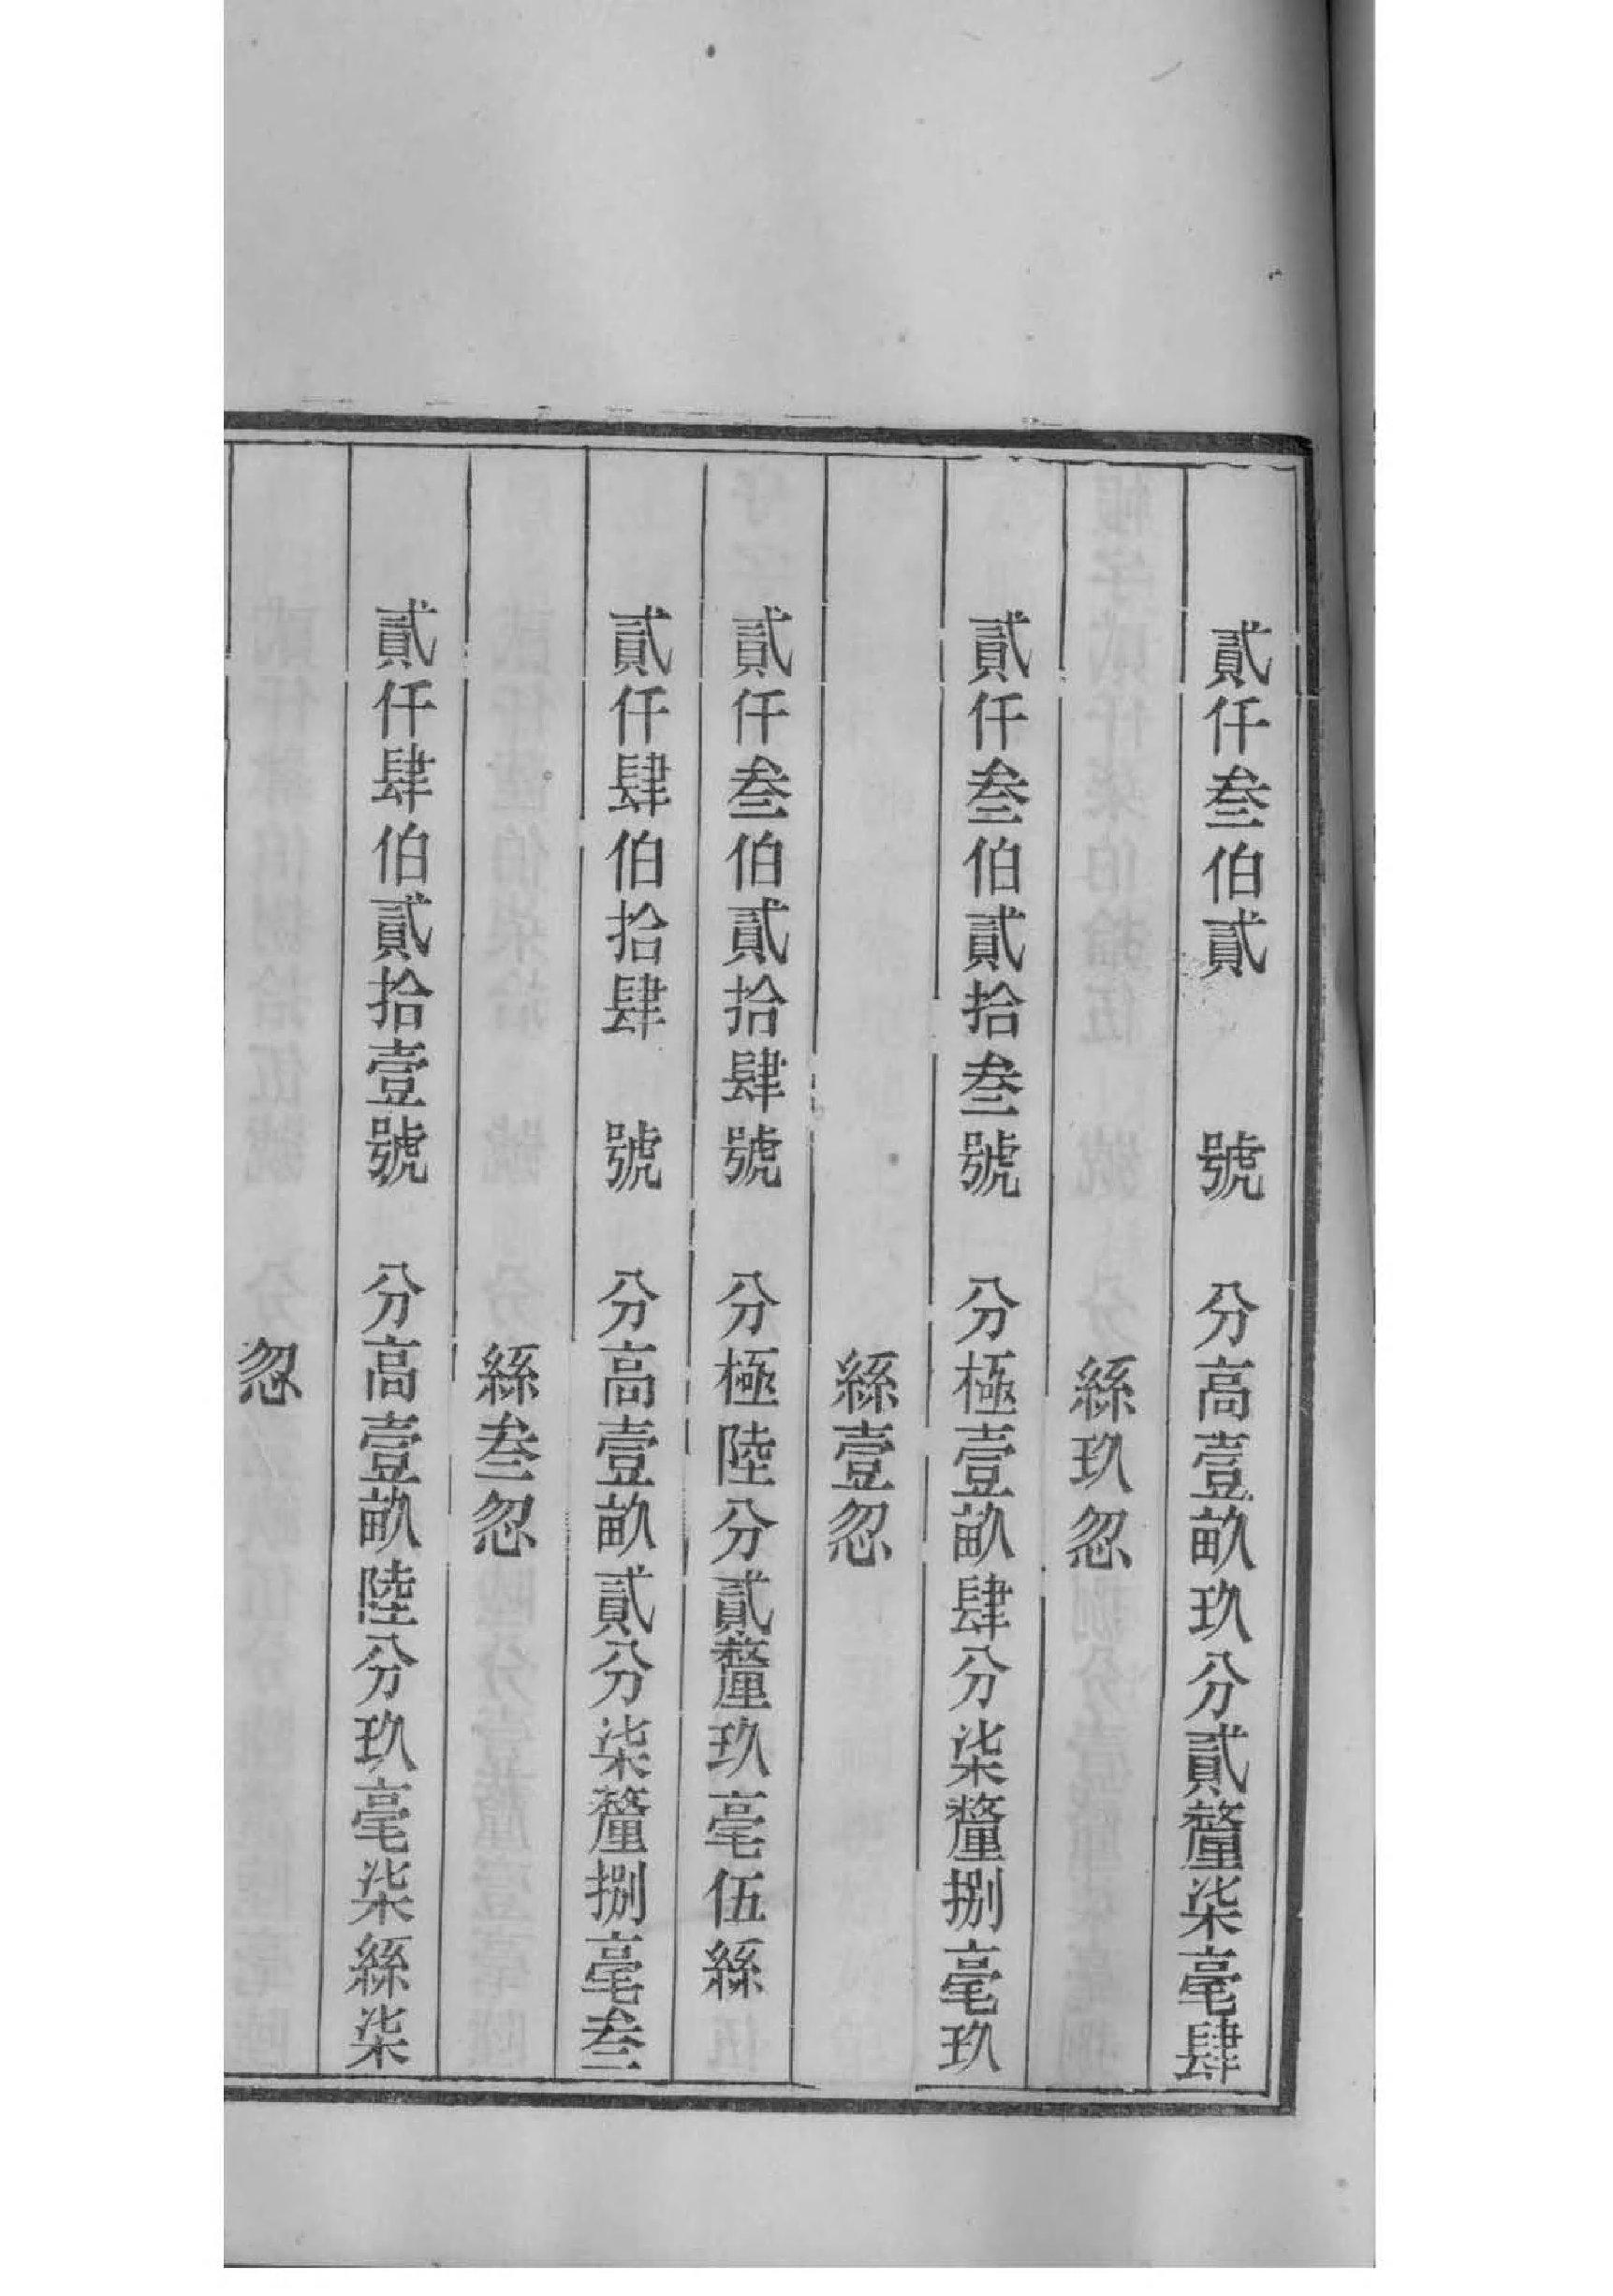 貳仟叁伯貳　號　分高壹畝玖分貳釐柒毫肆
絲玖忽
貳仟叁伯貳拾叁號　分極壹畝肆分柒釐捌毫玖
絲壹忽
貳仟叁伯貳拾肆號　分極陸分貳釐玖毫伍絲
貳仟肆伯拾肆　號　分高壹畝貳分柒釐捌毫叁
絲叁忽
貳仟肆伯貳拾壹號　分高壹畝陸分玖毫柒絲柒
忽